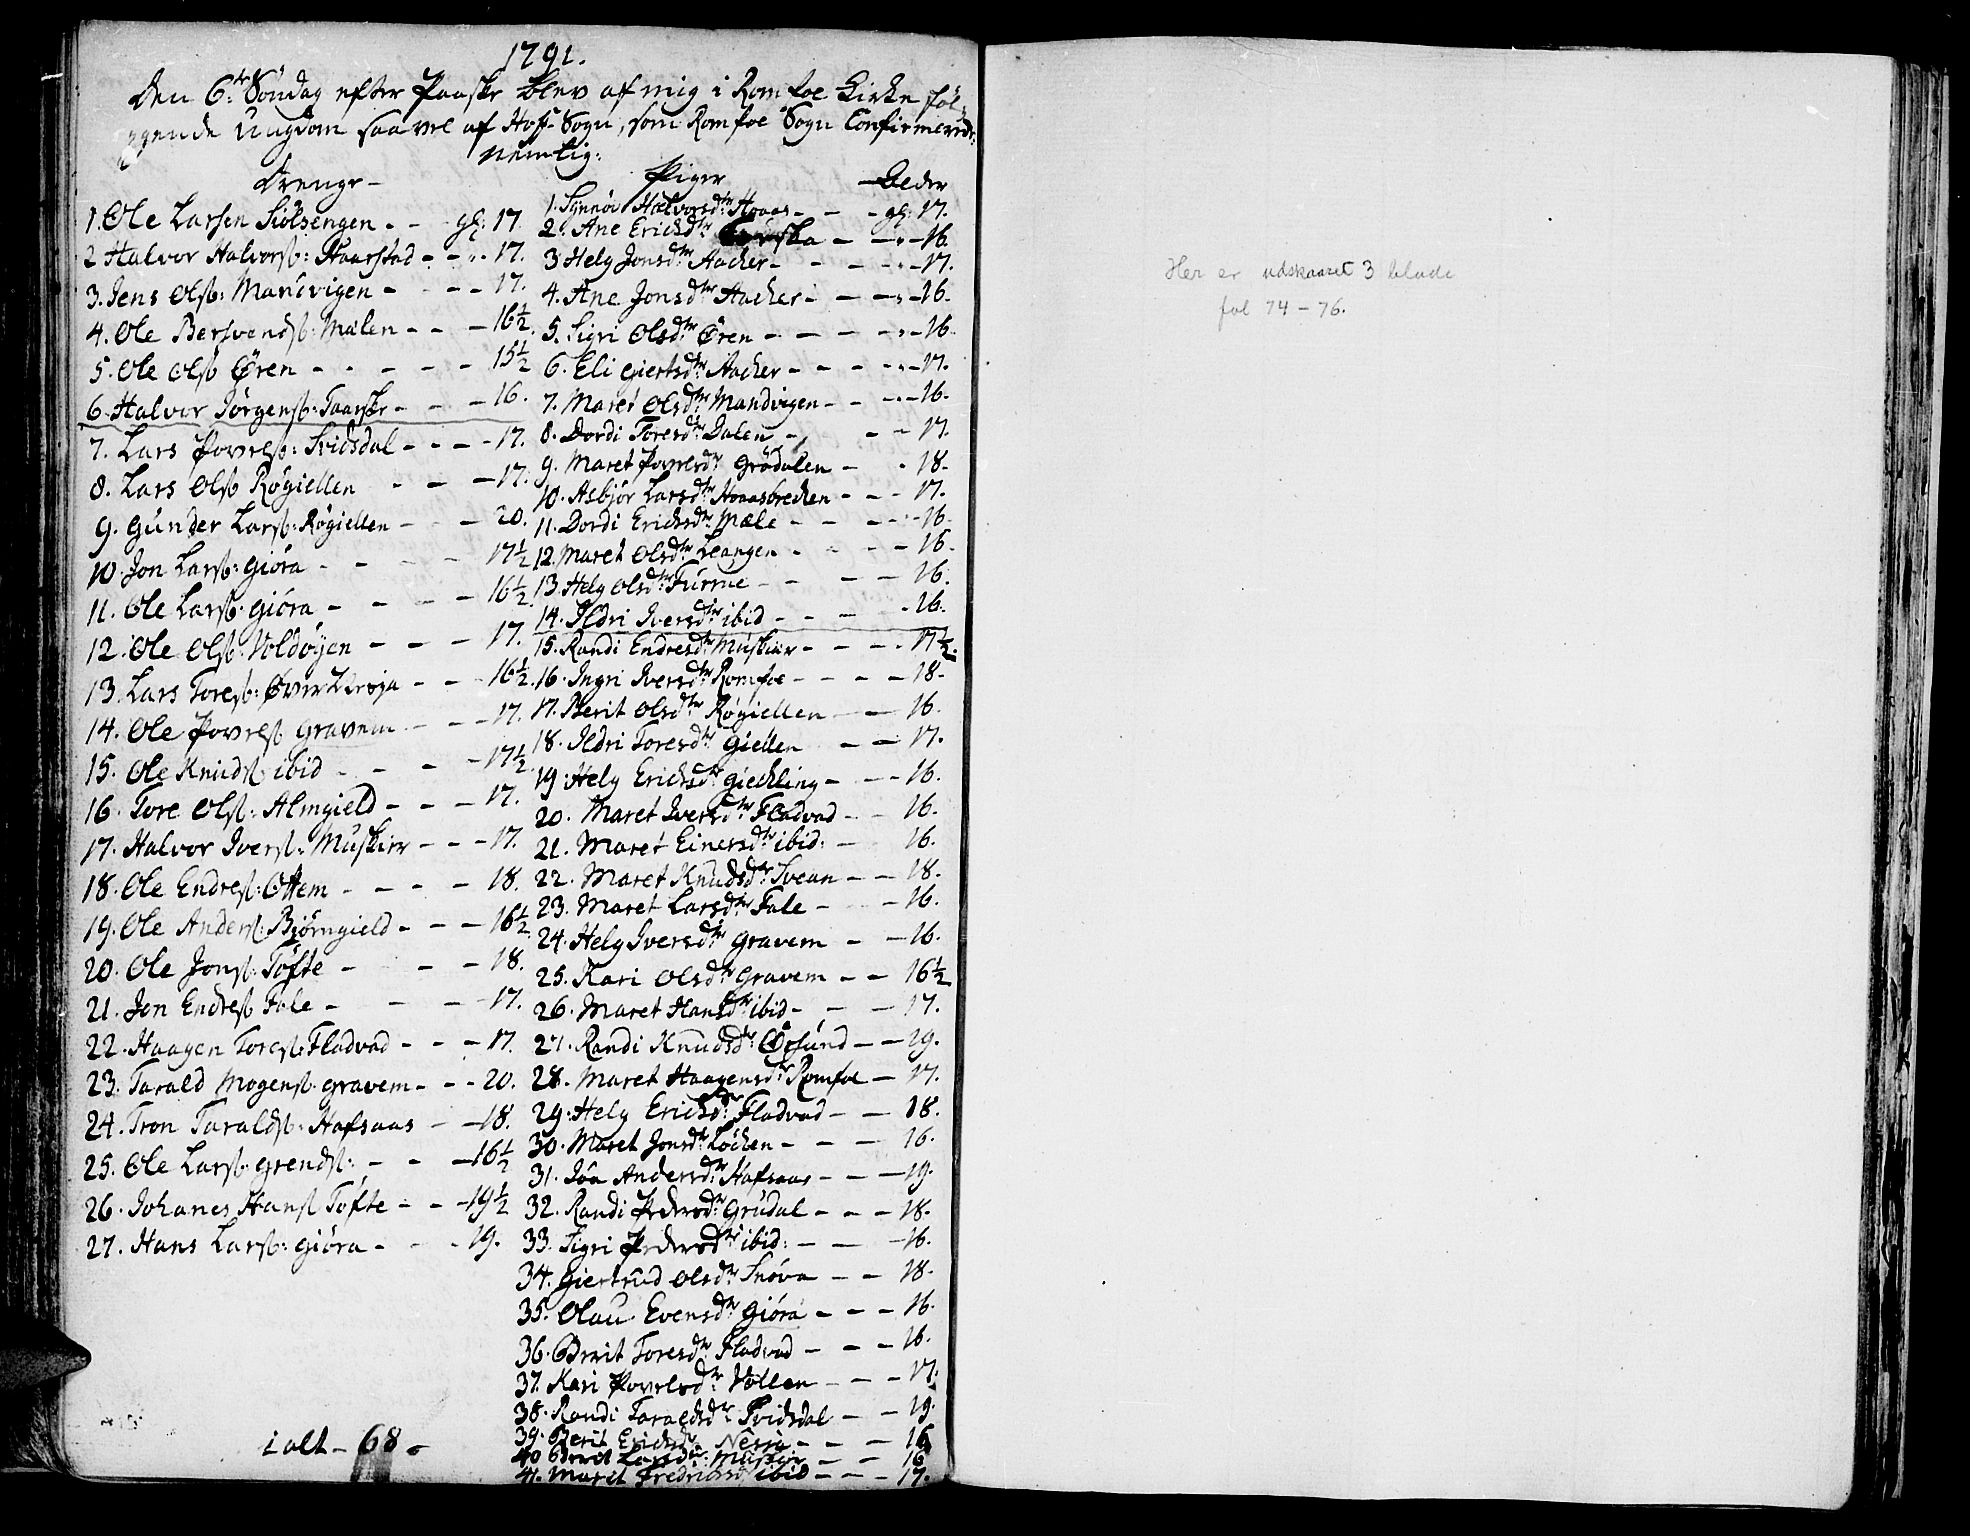 1791.
Den 6te Søndag efter Paaske blev af mig i Romfoe Kirke føl-
gende Ungdom saavel af Hofs Sogn, som Romfoe Sogn Confirmerede:
nemlig:
Drenge –
1. Ole Larsen Siølsengen - - gl: 17.
2 Halvor Halvorsß: Haarstad - - 17.
3. Jens Olsß: Mandvigen - - - 17.
4. Ole Bersvendsß: Mælen - - - 16 1/2.
5. Ole Olsß Øren - - - - - 15 1/2
6. Halvor Jørgensß: - - - 16.
7. Lars Povelsß: Svidsdal - - - - 17.
8. Lars Olsß Røgiellen - - - 17.
9. Gunder Larsß: Røgiellen - - - 20.
10. Jon Larsß: Giøra - - - - 17 1/2
11. Ole Larsß: Giøra - - - - 16 1/2.
12. Ole Olsß: Voldøyen - - - - 17.
13. Lars Toresß: Øver - - - 16 1/2.
14. Ole Povelsß Gravem - - - 17.
15. Ole Knudsß ibid - - - - 17 1/2.
16. Tore Olsß: Almgield - - - 17.
17. Halvor Iversß: Muskier - - - 17.
18. Ole Endresß: Ottem - - - - 18.
19. Ole Andersß: Biørngield - - - 16 1/2.
20. Ole Jonsß: Tøfte - - - - 18.
21. Jon Endresß Fale - - - - 17.
22. Haagen Toresß: Fladvad - - - 17.
23. Tarald Mogensß. Gravem - - - 20.
24. Tron Taraldsß: Hafsaas - - 18.
25. Ole Larsß: Grendsß: - - - 16 1/2
26. Johanes Hansß Tøfte - - - 19 1/2
27. Hans Larsß: Giøra - - - 19.
i alt – 68 –
Piger – Alder
1. Synnøv Halvorsdtr: Hoaas - - - gl: 17.
2. Ane Ericksdtr: - - - 16.
3 Helg Jonsdtr: Aacker - - - - 17.
4. Ane Jonsdtr Aacker - - - - 16.
5. Sigri Olsdtr Øren - - - - 16.
6. Eli Giertsdtr: Aacker - - - - 17.
7. Maret Olsdtr: Mandvigen - - - 16.
8. Dordi Toresdtr: Dalen - - - 17.
9. Maret Povelsdtr Grødalen - - 18.
10. Asbjør Larsdtr: Hoaasbrecken - - - 17.
11. Dordi Ericksdtr: Mæle - - - - 16.
12. Maret Olsdtr: Leangen - - - - 16.
13. Helg Olsdtr: Furrue - - - - 16.
14. Ildri Iversdtr: ibid - - - - 16.
15. Randi Endresdtr: Muskier - - - - 17 1/2.
16. Ingri Iversdtr: Romfoe - - - - 18.
17. Berit Olsdtr Røgiellen - - 16.
18. Ildri Toresdtr: Giellen - - 17.
19. Helg Ericksdtr: Gieckling - - - 16.
20. Maret Iversdtr: Fladvad - - 16.
21. Maret Einersdtr: ibid: - 16.
22. Maret Knudsdtr: Svean - - 18.
23. Maret Larsdtr: Fale - - 16.
24. Helg Iversdtr Gravem - - 16.
25. Kari Olsdtr: Gravem - - 16 1/2
26. Maret Hansdtr: ibid - - - 17.
27. Randi Knudsdtr: - - 19.
28. Maret Haagensdtr: Romfoe - 17.
29. Helg Ericksdtr: Fladvad - - 18.
30. Maret Jonsdtr: Løcken - - - 16.
31. Andersdtr: Hafsaas - - - 19.
32. Randi Pedersdtr: Grudal - - - 18.
33. Sigri Pedersdtr ibid: - - - 16.
34. Giertrud Olsdtr: Snøva - - 18.
35. Olau Evensdtr: Giøra - - - 16.
36. Berit Toresdtr: Fladvad - - - 16.
37. Kari Povelsdtr: Vollen - - - 17.
38. Randi Taraldsdtr: Svidsdal - - 19.
39. Berit Ericksdtr - - - 16
40 Berit Larsdtr: Muskier - - 16
41. Maret Fredricksdtr ibid - - - 17.
Her er udskaaret 3 blade
fol 74 – 76.